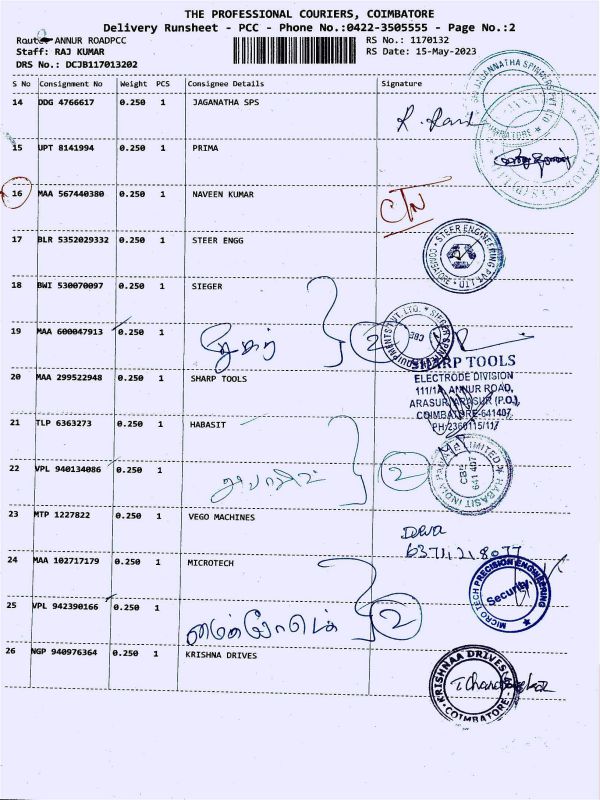 THE PROFESSIONAL COURIERS, COIMBATORE
Delivery Runsheet - PCC - Phone No.:0422-3505555 - Page No.:2
Route: ANNUR ROADPCC RS No.: 1170132
Staff: RAJ KUMAR RS Date: 15-May-2023
DRS No.: DCJB117013202
S No Consignment No Weight PCS Consignee Details Signature
14 DDG 4766617 0.250 1 JAGANATHA SPS
15 UPT 8141994 0.250 1 PRIMA
16 MAA 567440380 0.250 1 NAVEEN KUMAR
17 BLR 5352029332 0.250 1 STEER ENGG
STEER ENGINEERING PVT LTD
COIMBATORE
18 BWI 530070097 0.250 1 SIEGER
19 MAA 600047913 0.250 1 2
CBE
20 MAA 299522948 0.250 1 SHARP TOOLS
SHARP TOOLS
ELECTRODE DIVISION
111/1A, ANNUR ROAD,
ARASUR, ARASUR (P.O.),
COIMBATORE-641407,
21 TLP 6363273 0.250 1 HABASIT
22 VPL 940134086 0.250 1 2
HABASIT INDIA LIMITED
CBE
641 407
23 MTP 1227822 0.250 1 VEGO MACHINES
24 MAA 102717179 0.250 1 MICROTECH
MICRO TECH PRECISION ENGINEERING
Security
25 VPL 942390166 0.250 1 2
26 NGP 940976364 0.250 1 KRISHNA DRIVES
KRISHNAA DRIVES
COIMBATORE